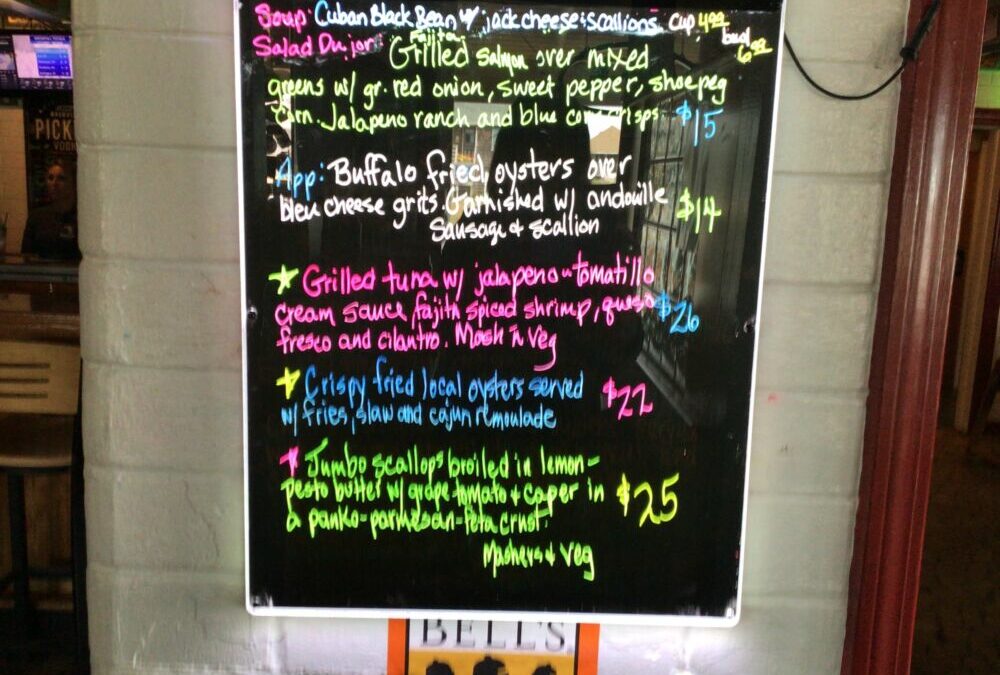 Soup: Cuban Black Bean w/ jack cheese & scallions. Cup 4.99
bowl 6.99
Salad Du jor: Fajita
Grilled salmon over mixed
greens w/ gr. red onion, sweet pepper, shoepeg
corn. Jalapeno ranch and blue corn crisps. $15
App: Buffalo fried oysters over
bleu cheese grits. Garnished w/ andouille $14
Sausage & scallion
Grilled tuna w/ jalapeno-tomatillo
cream sauce, fajita spiced shrimp, queso $26
fresco and cilantro. Mash n Veg
Crispy fried local oysters served $22
w/ fries, slaw and cajun remoulade
Jumbo scallops broiled in lemon-
pesto butter w/ grape tomato & caper in $25
a panko-parmesan-feta crust.
Mashers & Veg
BELL'S
PICK